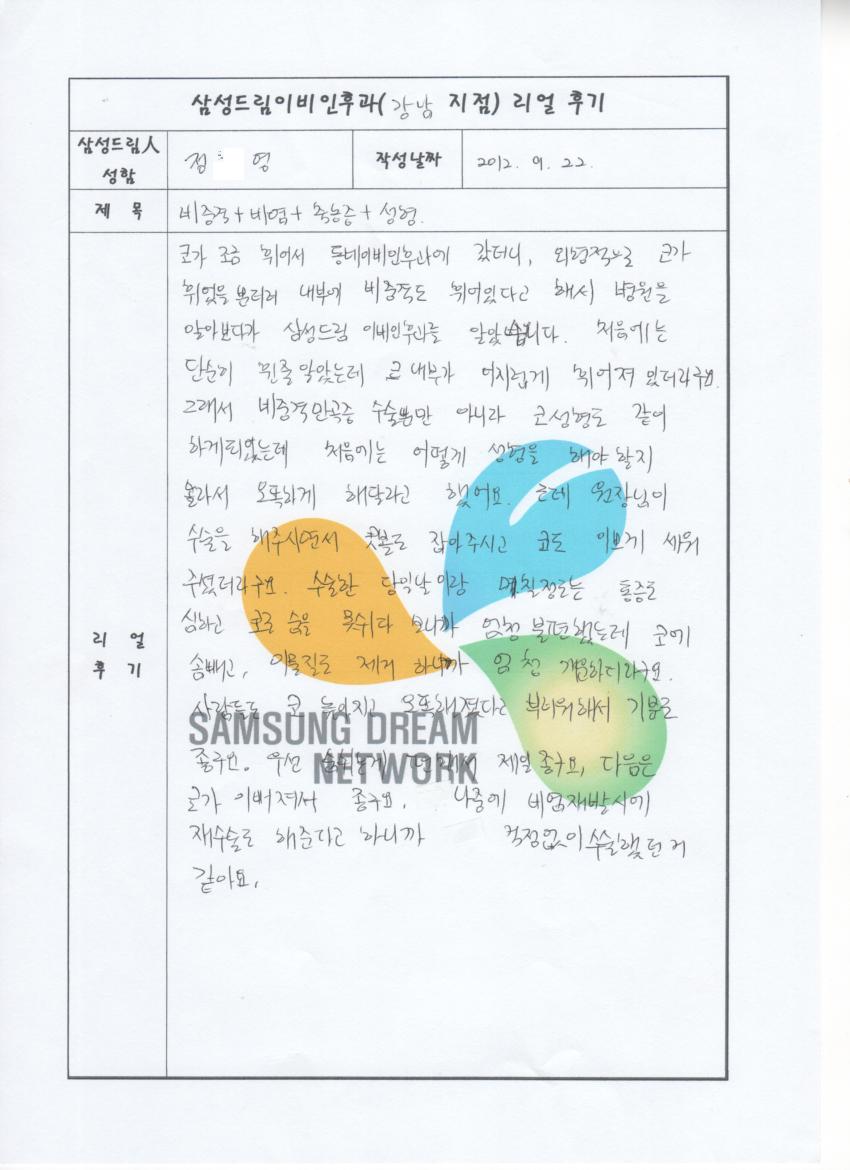 삼성드림이비인후과(강남 지점) 리얼 후기
삼성드림人 성함
정 영
작성날짜
2012. 9. 22.
제 목
비중격+비염+축농증+성형.
리 얼 후 기
코가 조금 휘어서 동네이비인후과에 갔더니, 외형적으로 코가
휘었을 뿐더러 내부에 비중격도 휘어있다고 해서 병원을
알아보다가 삼성드림 이비인후과를 알았습니다. 처음에는
단순히 휜줄 알았는데 코 내부가 어지럽게 휘어져 있더라구요.
그래서 비중격만곡증 수술뿐만 아니라 코성형도 같이
하게되었는데 처음에는 어떻게 성형을 해야할지
몰라서 오똑하게 해달라고 했어요. 근데 원장님이
수술을 해주시면서 콧볼도 잡아주시고 코도 이쁘게 세워
주셨더라구요. 수술한 당일날이랑 며칠정도는 통증도
심하고 코로 숨을 못쉬다 보니까 엄청 불편했는데 코에
솜빼고, 이물질도 제거 하니까 엄청 개운하더라구요.
사람들도 코 높아지고 오똑해졌다고 부러워해서 기분도
좋구요. 우선 숨쉬는게 편해서 제일 좋구요, 다음은
코가 이뻐져서 좋구요, 나중에 비염재발시에
재수술도 해준다고 하니까 걱정없이 수술했던거
같아요.
SAMSUNG DREAM
NETWORK